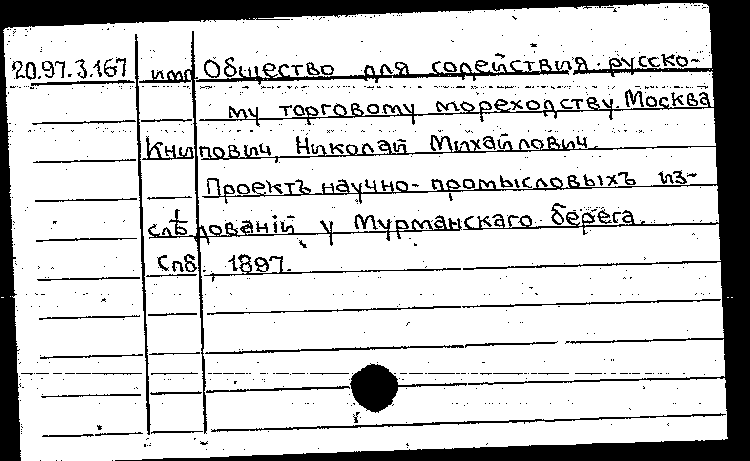 20.97.3.167 имп Общество для содействия русско-
му торговому мореходству. Москва
Книпович, Николай Михайлович.
Проектъ научно-промысловыхъ из-
слѣдованій у Мурманскаго берега.
Спб., 1897.